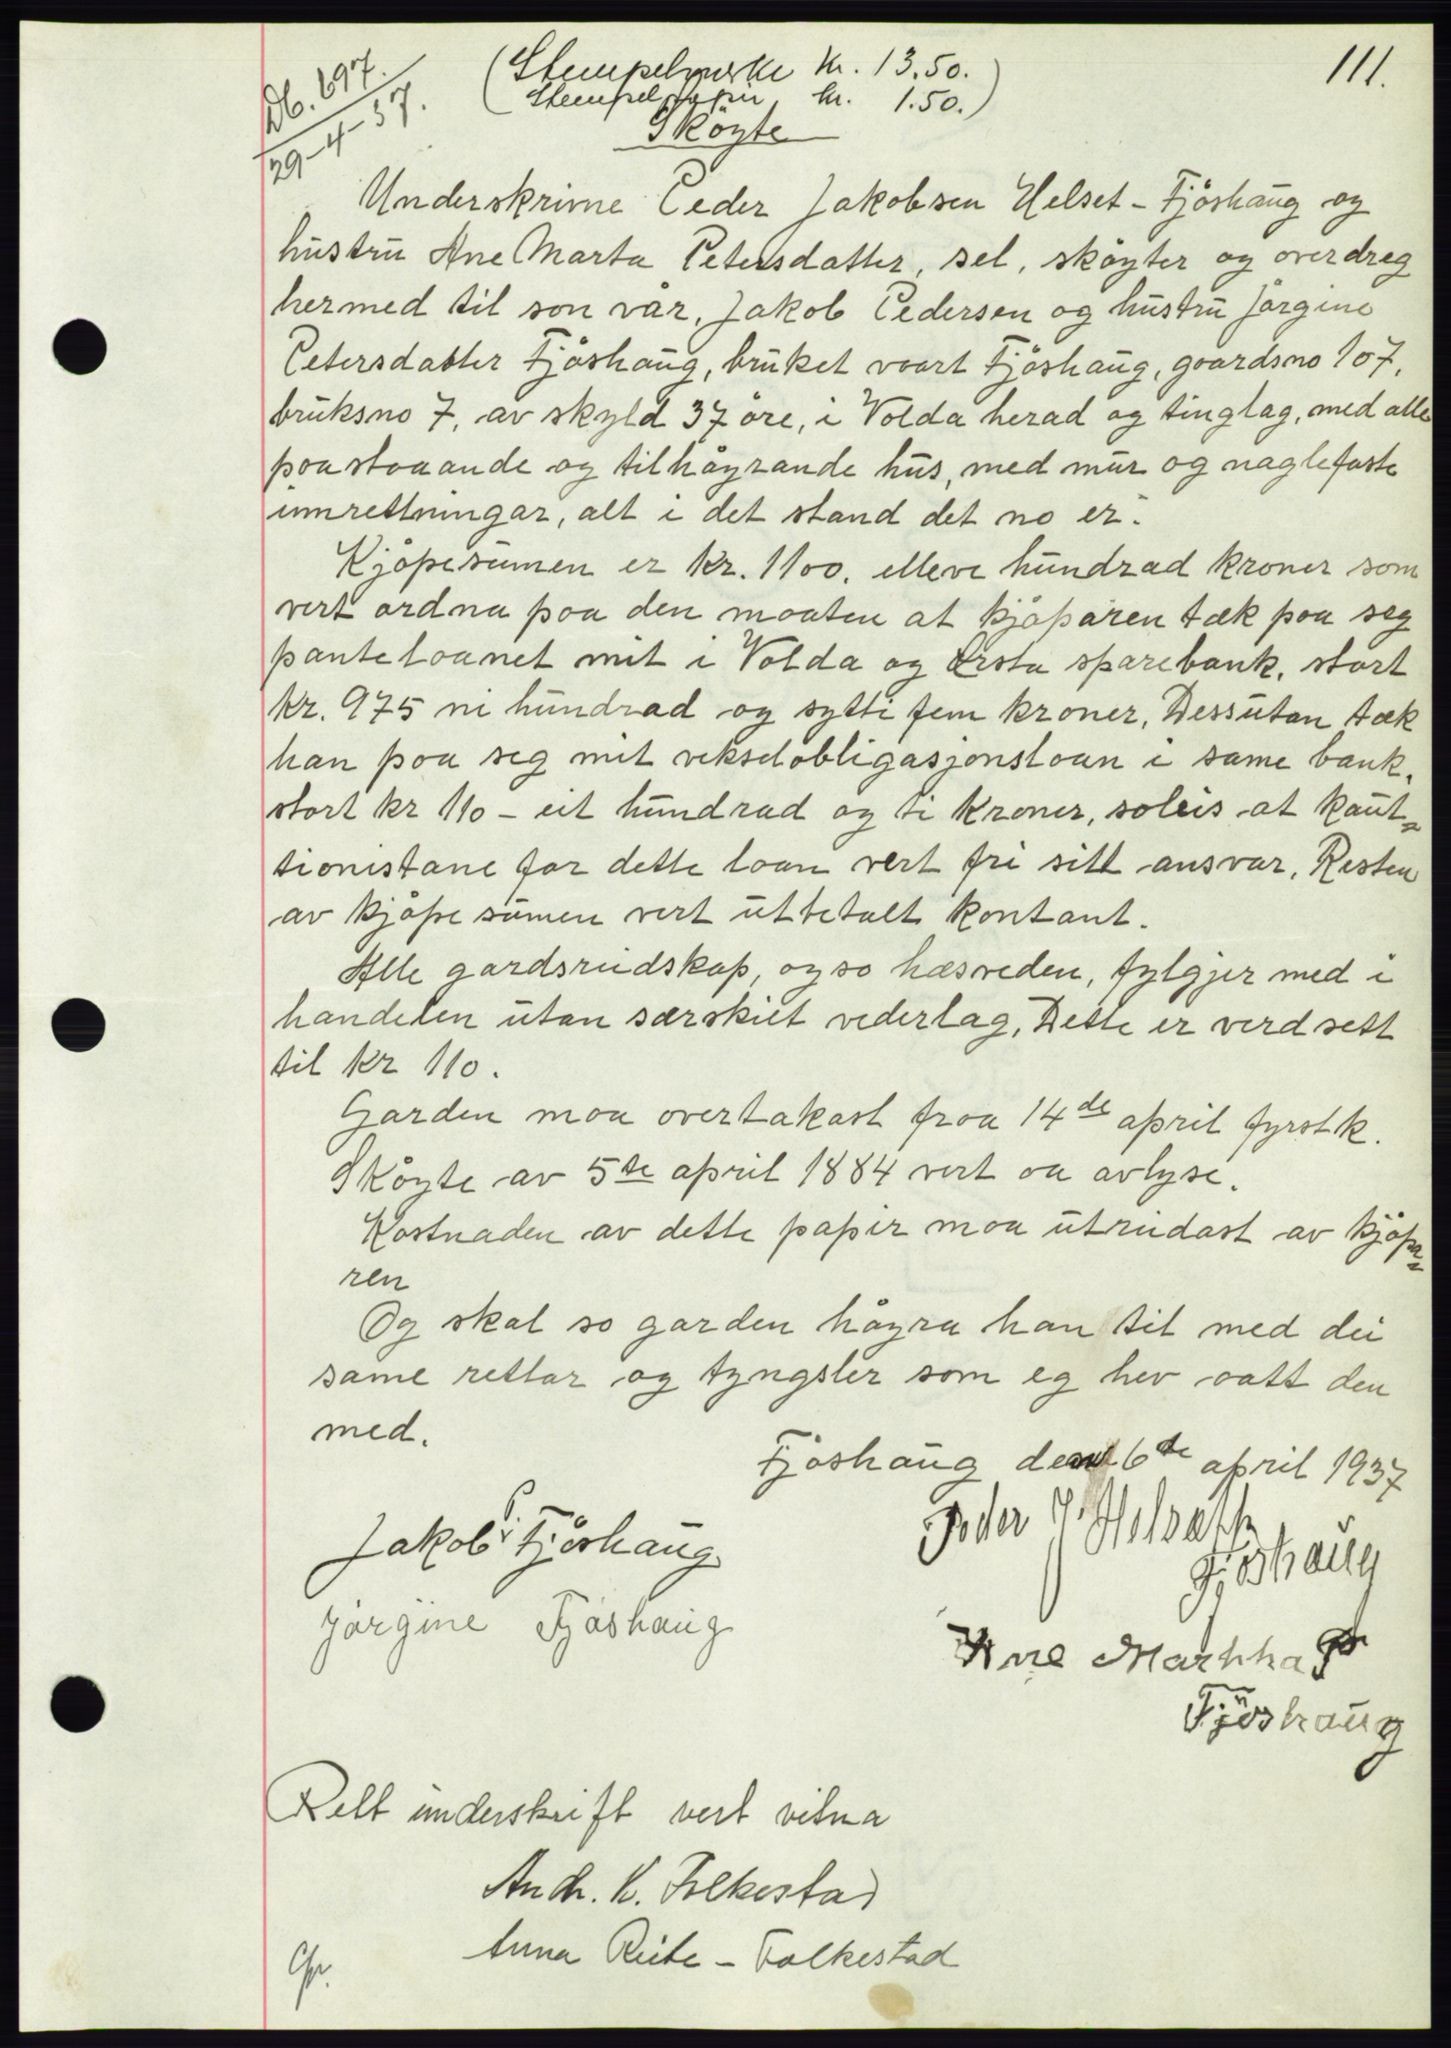 111.
Db. 697.
29-4-37.
(Stempelmerke kr. 13.50.)
(Stempelpapir kr. 1.50.)
Sköyte
Underskrivne Peder Jakobsen Helset - Fjöshaug og
hustru Ane Marta Petersdatter, sel, sköyter og overdreg
hermed til son vår, Jakob Pedersen og hustru Jörgine
Petersdatter Fjöshaug, bruket voart Fjöshaug, goardsno 107,
bruksno 7, av skyld 37 öre, i Volda herad og tinglag, med alle
poastoaande og tilhöyrande hus, med mur og naglefaste
innrettningar, alt i det stand det no er.
Kjöpesumen er kr. 1100. elleve hundrad kroner som
vert ordna poa den moaten at kjöparen tæk poa seg
panteloanet mit i Volda og Örsta sparebank, stort
kr. 975 ni hundrad og sytti fem kroner, Dessutan tæk
han poa seg mit vekselobligasjonsloan i same bank,
stort kr 110 - eit hundrad og ti kroner, soleis at kaut=
tionistane for dette loan vert fri sitt ansvar. Resten
av kjöpesumen vert utbetalt kontant.
Alle gardsreidskap, og so hæsveden, fylgjer med i
handelen utan særskiet vederlag. Dette er verdsett
til kr 110.
Garden moa overtakast froa 14de april fyrstk.
Sköyte av 5te april 1884 vert oa avlyse.
Kostnaden av dette papir moa utreidast av kjöpa=
ren
Og skal so garden höyra han til med dei
same rettar og tyngsler som eg hev oatt den
med.
Fjöshaug den 6te april 1937
Jakob P. Fjöshaug
Peder J. Helsett
Fjöshaug
Jörgine Fjöshaug
Ane Martha P
Fjöshaug
Rett underskrift vert vitna
Andr. K. Folkestad
Anna Reite - Folkestad